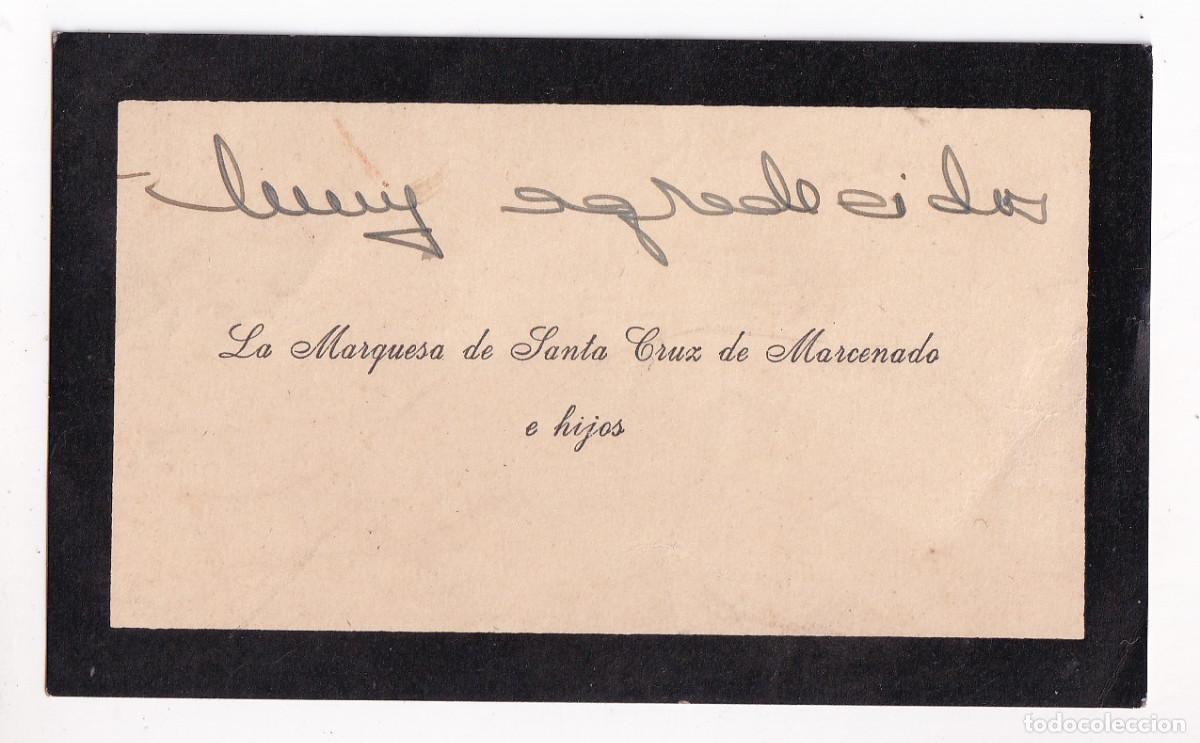 muy agradecidos
La Marquesa de Santa Cruz de Marcenado
e hijos
todocoleccion